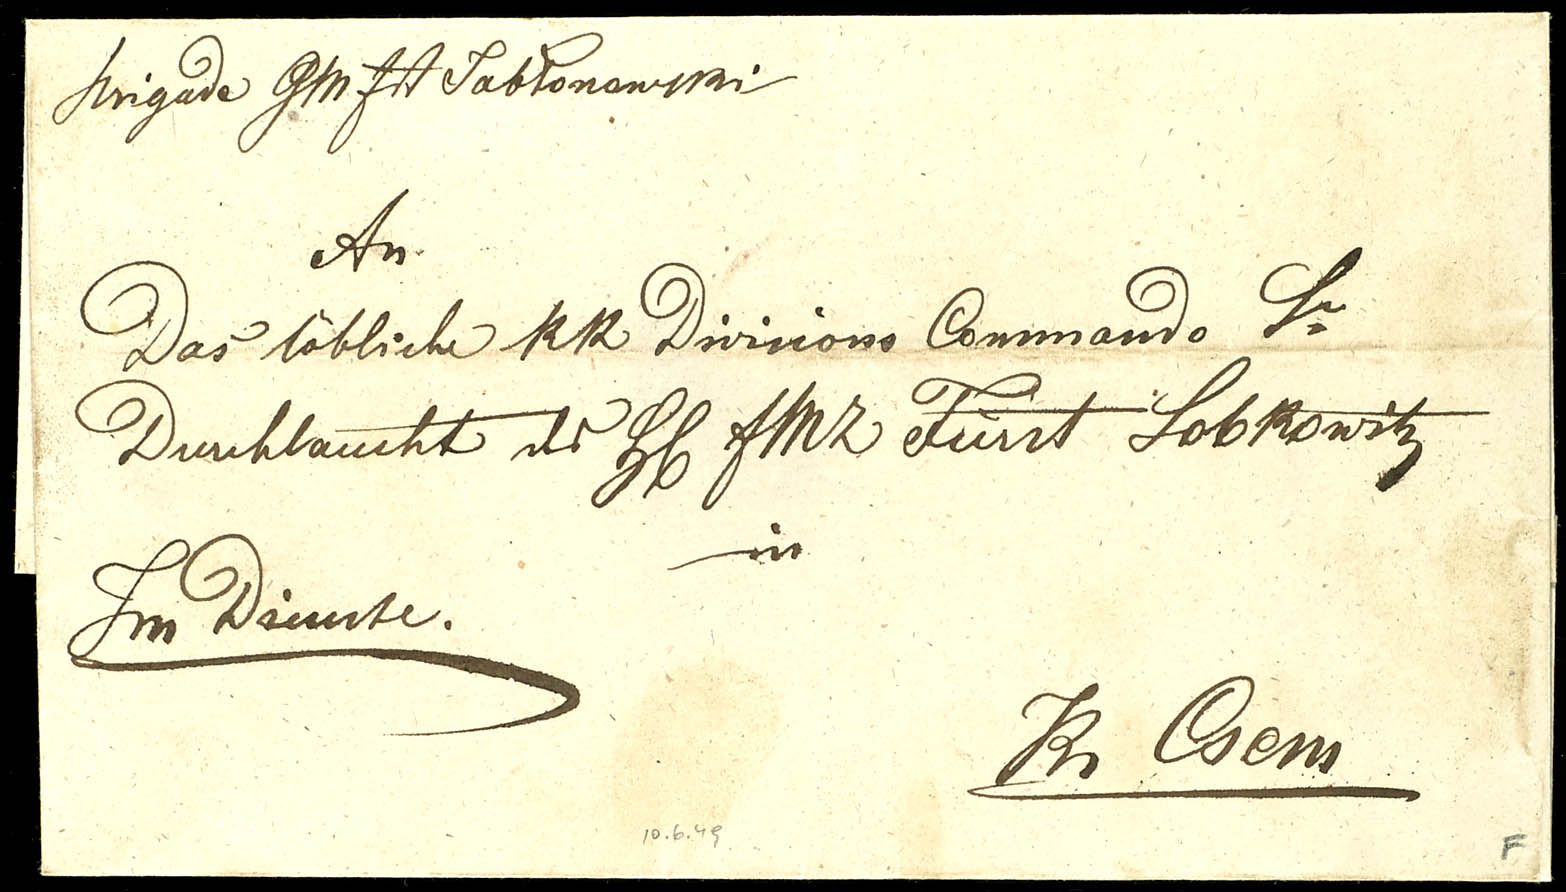 Brigade GM Fst Jablonowski
An
Das löbliche kk Divisions Commando Sr
Durchlaucht des H FML Fürst Lobkowitz
in
Im Dienste.
Kis Csem
10.6.49
F